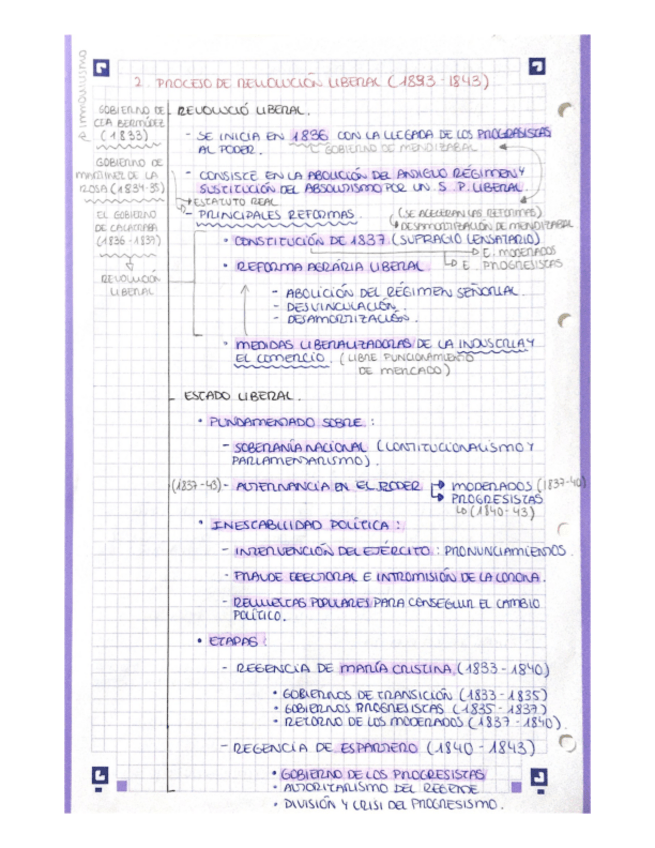 2. PROCESO DE REVOLUCIÓN LIBERAL (1893-1843)
e inmovilismo
GOBIERNO DE
CEA BERMÚDEZ
(1833)
GOBIERNO DE
MARTÍNEZ DE LA
ROSA (1834-35)
EL GOBIERNO
DE CALATRABA
(1836-1837)
REVOLUCIÓN
LIBERAL
REVOLUCIÓ LIBERAL.
- SE INICIA EN 1836 CON LA LLEGADA DE LOS PROGRASISTAS
AL PODER. GOBIERNO DE MENDIZABAL
- CONSISTE EN LA ABOLICIÓN DEL ANTIGUO RÉGIMEN Y
SUSTITUCIÓN DEL ABSOLUTISMO POR UN S. P. LIBERAL.
ESTATUTO REAL
- PRINCIPALES REFORMAS. (SE ACELERAN LAS REFORMAS)
DESAMORTIZACIÓN DE MENDIZABAL
• CONSTITUCIÓN DE 1837 (SUFRAGIO CENSATARIO)
E. MODERADOS
• REFORMA AGRÁRIA LIBERAL. E. PROGRESISTAS
- ABOLICIÓN DEL RÉGIMEN SEÑORIAL.
- DESVINCULACIÓN.
- DESAMORTIZACIÓN.
• MEDIDAS LIBERALIZADORAS DE LA INDUSTRIA Y
EL COMERCIO. (LIBRE FUNCIONAMIENTO
DE MERCADO)
ESTADO LIBERAL.
• FUNDAMENTADO SOBRE:
- SOBERANÍA NACIONAL (CONTITUCIONALISMO Y
PARLAMENTARISMO).
(1837-43) - ALTERNANCIA EN EL PODER → MODERADOS (1837-40)
→ PROGRESISTAS
(1840-43)
• INESTABILIDAD POLÍTICA:
- INTERVENCIÓN DEL EJÉRCITO: PRONUNCIAMIENTOS.
- FRAUDE ELECTORAL E INTROMISIÓN DE LA CORONA.
- REVUELTAS POPULARES PARA CONSEGUIR EL CAMBIO
POLÍTICO.
• ETAPAS:
- REGENCIA DE MARÍA CRISTINA (1833-1840)
• GOBIERNOS DE TRANSICIÓN (1833-1835)
• GOBIERNOS PROGRESISTAS (1835-1837)
• RETORNO DE LOS MODERADOS (1837-1840).
- REGENCIA DE ESPARTERO (1840-1843)
• GOBIERNO DE LOS PROGRESISTAS
• AUTORITARISMO DEL REGENTE
• DIVISIÓN Y CRISI DEL PROGRESISMO.